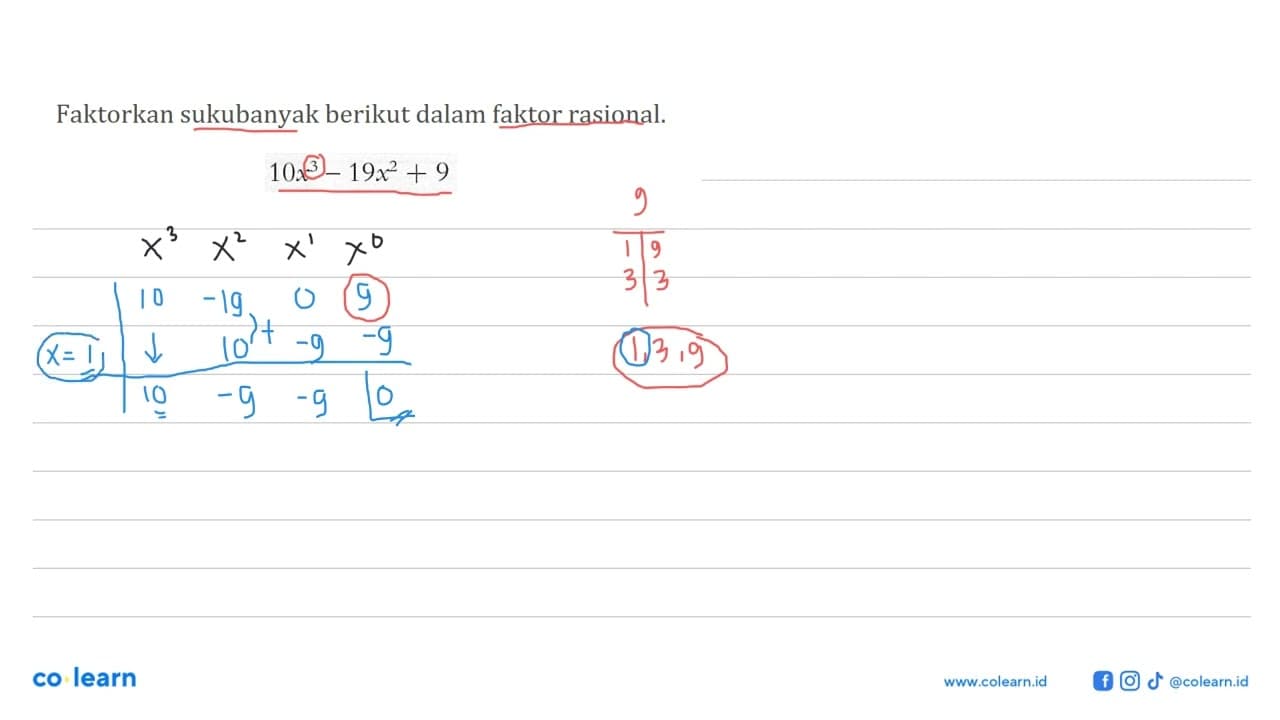 Faktorkan sukubanyak berikut dalam faktor rasional.
10x³ – 19x² + 9
9
1 9
3 3
1, 3, 9
x³ x² x¹ x⁰
10 -19 0 9
x = 1, ↓ 10 + -9 -9
10 -9 -9 0
co learn
www.colearn.id @colearn.id